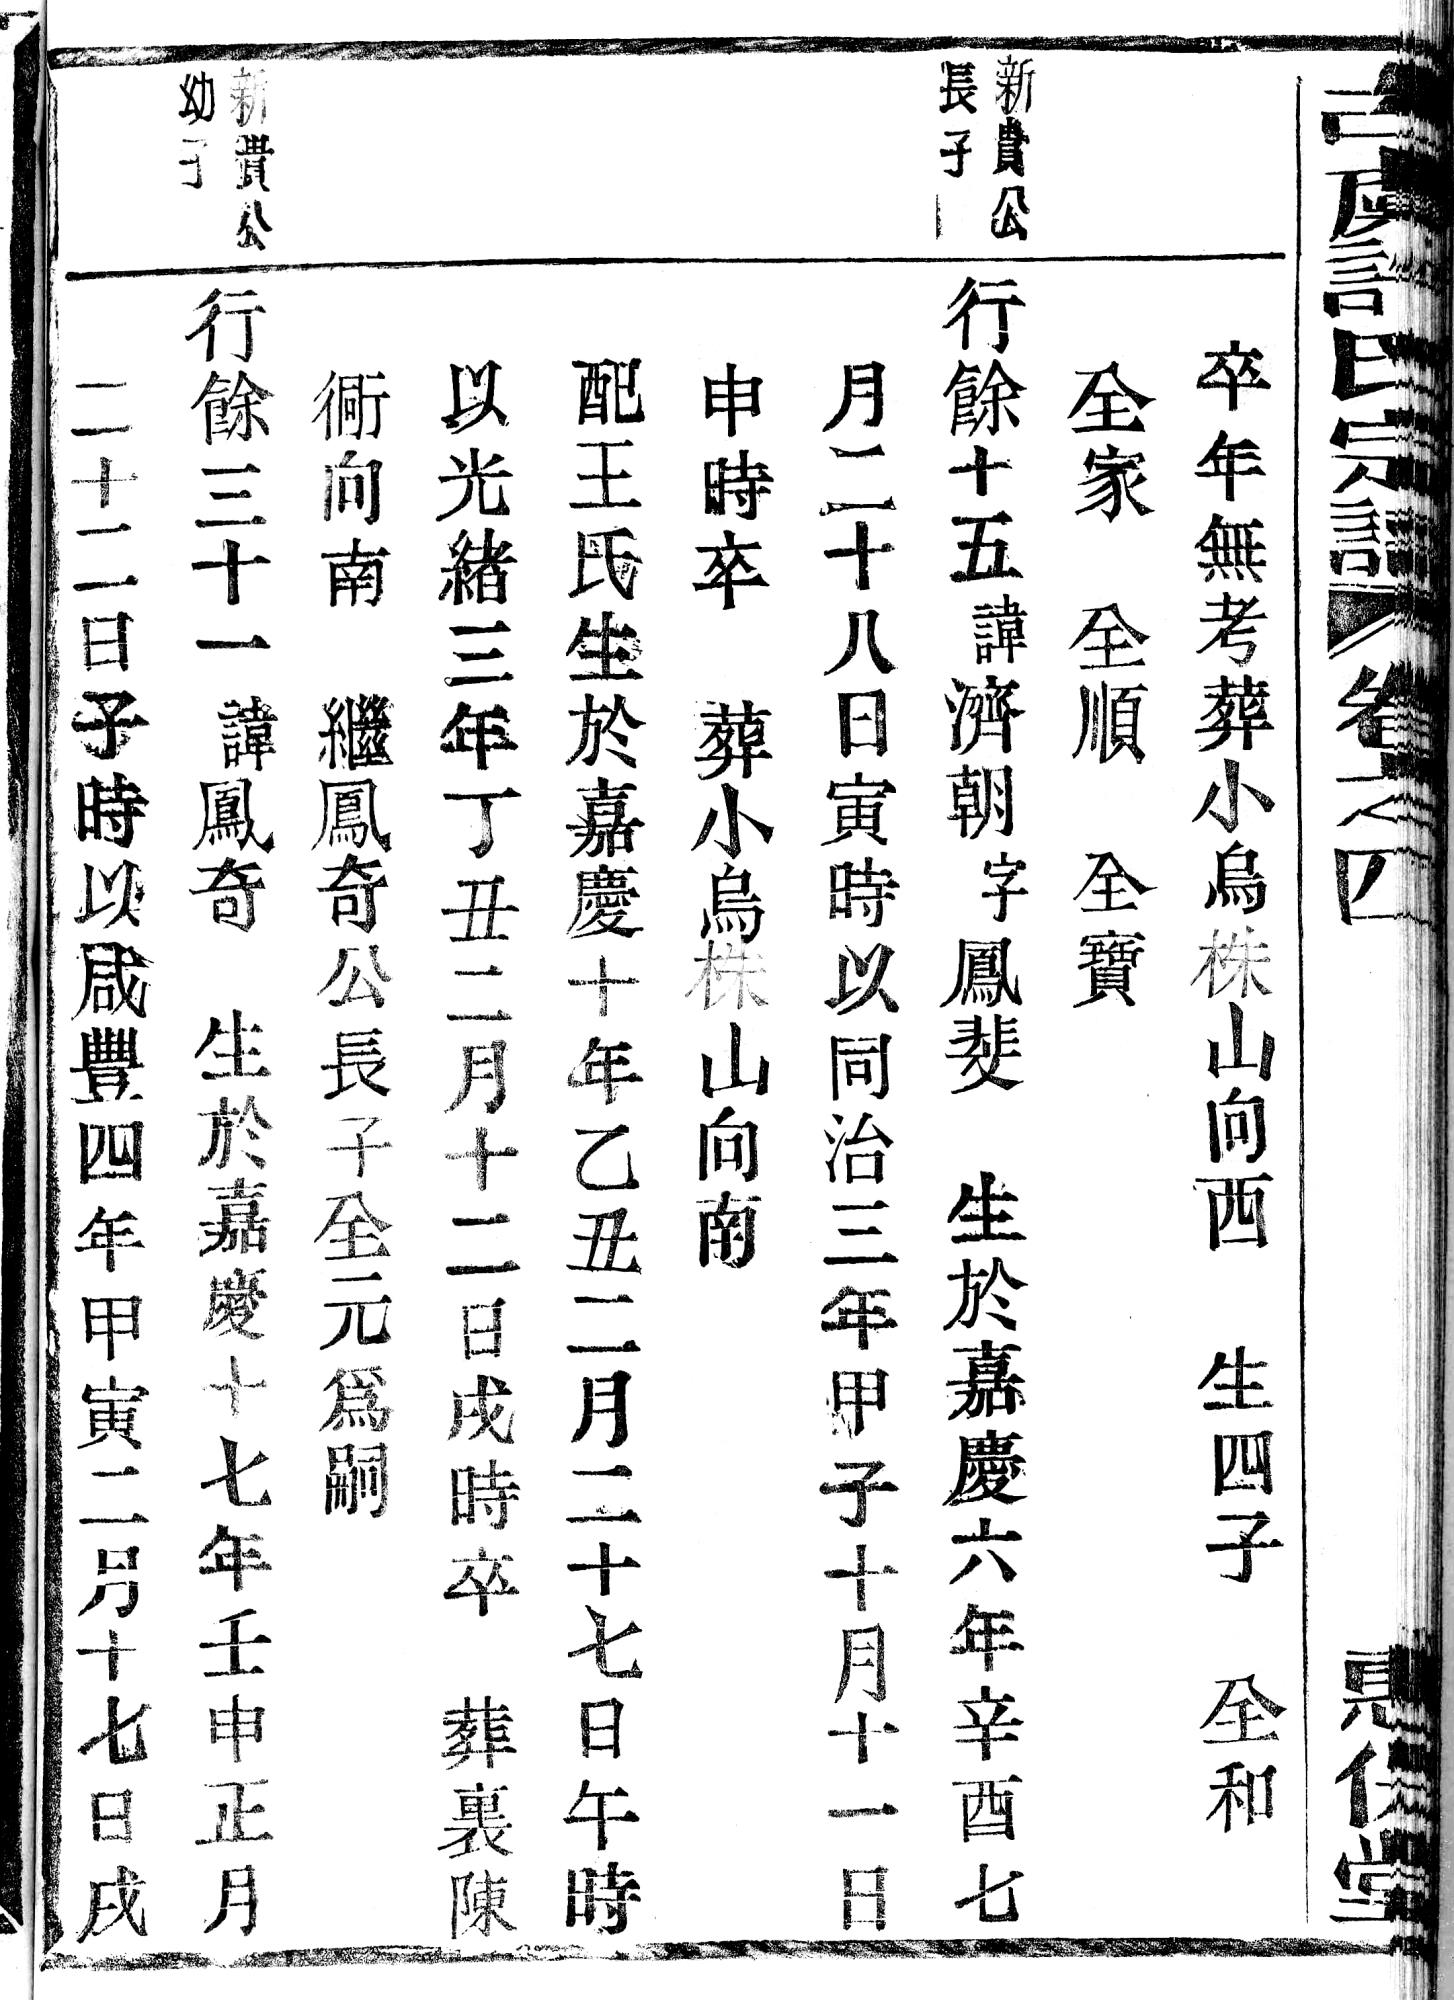 卷之四
卒年無考葬小烏株山向西　生四子　全和
全家　全順　全寶
新貴公
長子
行餘十五諱濟朝字鳳斐　生於嘉慶六年辛酉七
月二十八日寅時以同治三年甲子十月十一日
申時卒　葬小烏株山向南
配王氏生於嘉慶十年乙丑二月二十七日午時
以光緒三年丁丑二月十二日戌時卒　葬裏陳
衕向南　繼鳳奇公長子全元爲嗣
新貴公
幼子
行餘三十一諱鳳奇　生於嘉慶十七年壬申正月
二十二日子時以咸豐四年甲寅二月十七日戌